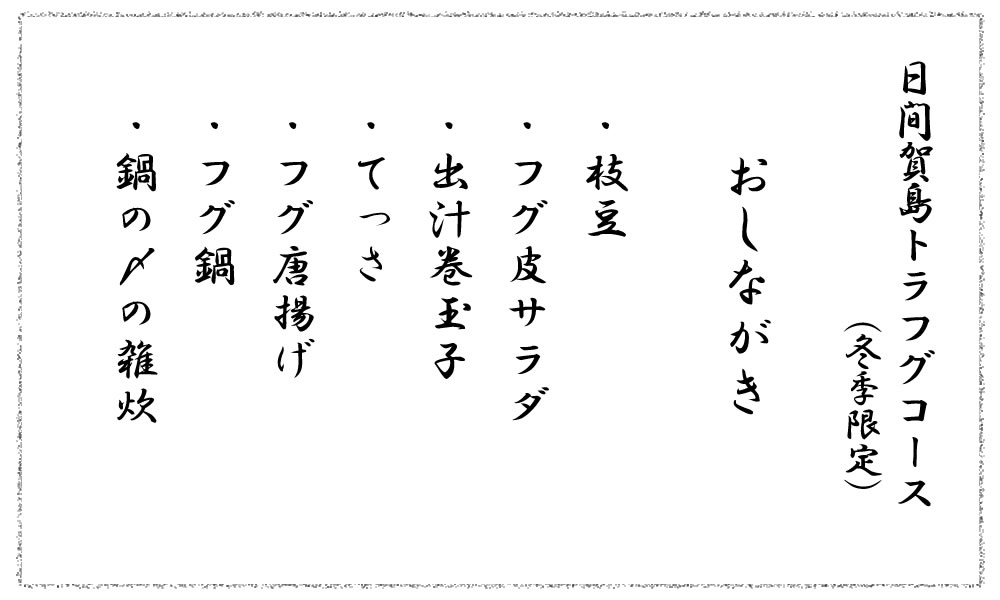 日間賀島トラフグコース
（冬季限定）
おしながき
・枝豆
・フグ皮サラダ
・出汁巻玉子
・てっさ
・フグ唐揚げ
・フグ鍋
・鍋の〆の雑炊